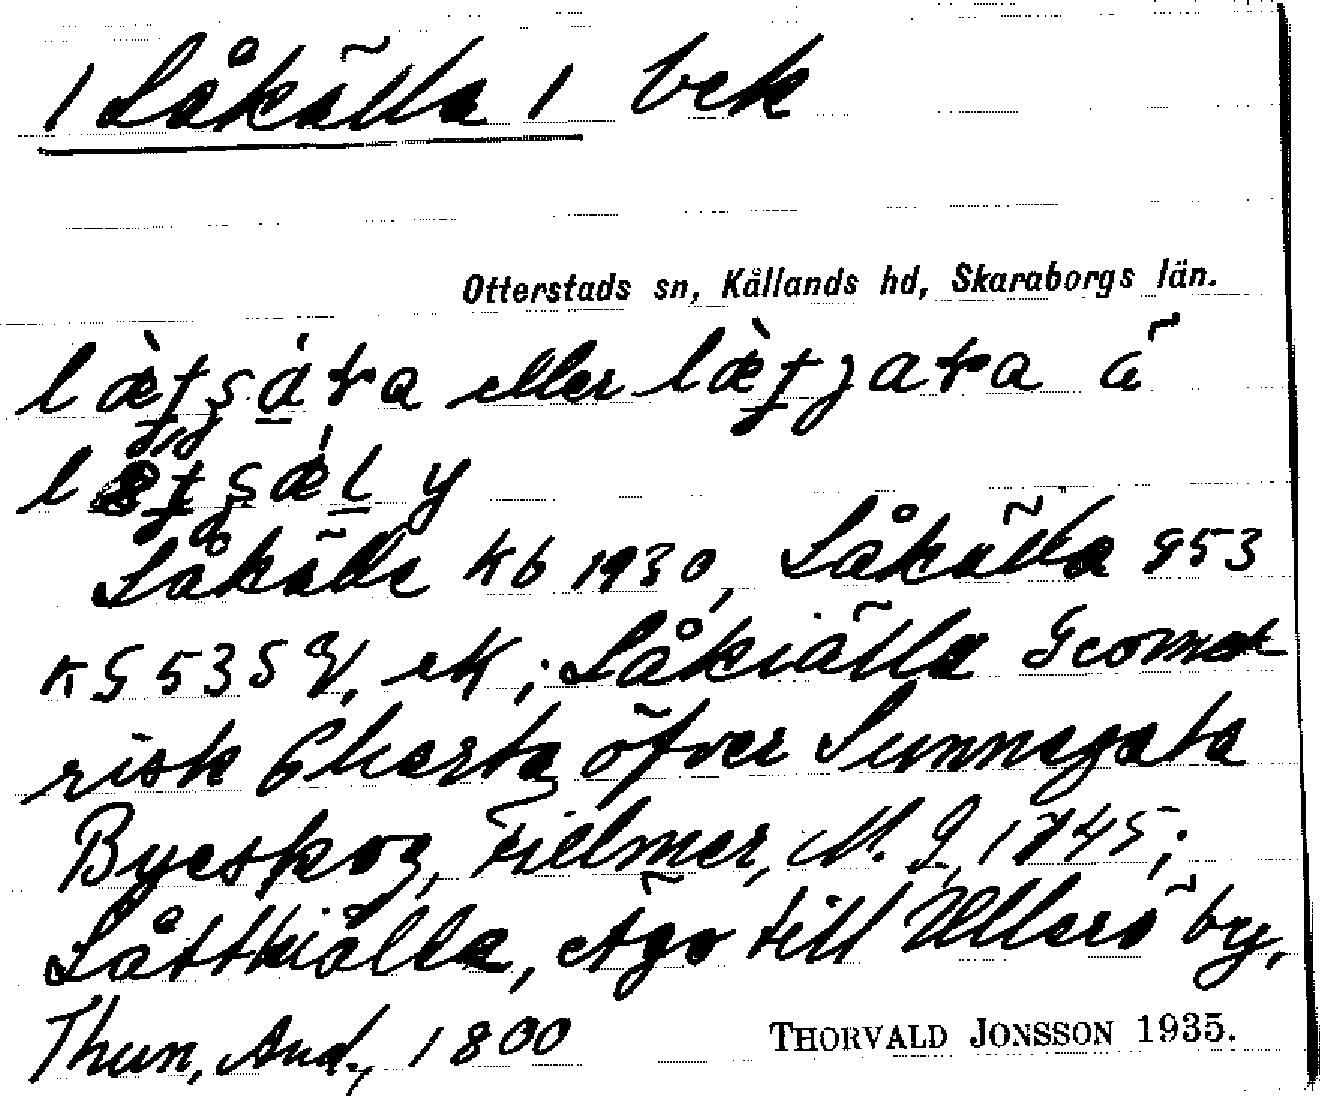 /Låkälla/ bek
Otterstads sn, Kållands hd, Skaraborgs län.
eller ä
y
Låkälla Kb 1930, Låkälla G53
KG 53 S V, ek; Låkiälla Geomet
risk Charta öfver Sunnegata
Byeskog, Fillmer, M. J, 1845;
Låttkiälla, Ägor till Ullerö by,
Thun, And., 1800
THORVALD JONSSON 1935.